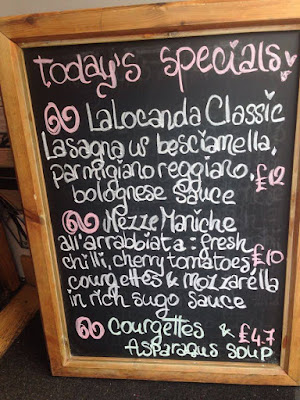 today's specials
LaLocanda Classic
Lasagna w besciamella,
parmigiano reggiano, £12
bolognese sauce
Mezze Maniche
all'arrabbiata: fresh
chilli, cherry tomatoes, £10
courgettes & mozzarella
in rich sugo sauce
courgettes & £4.7
Asparagus soup